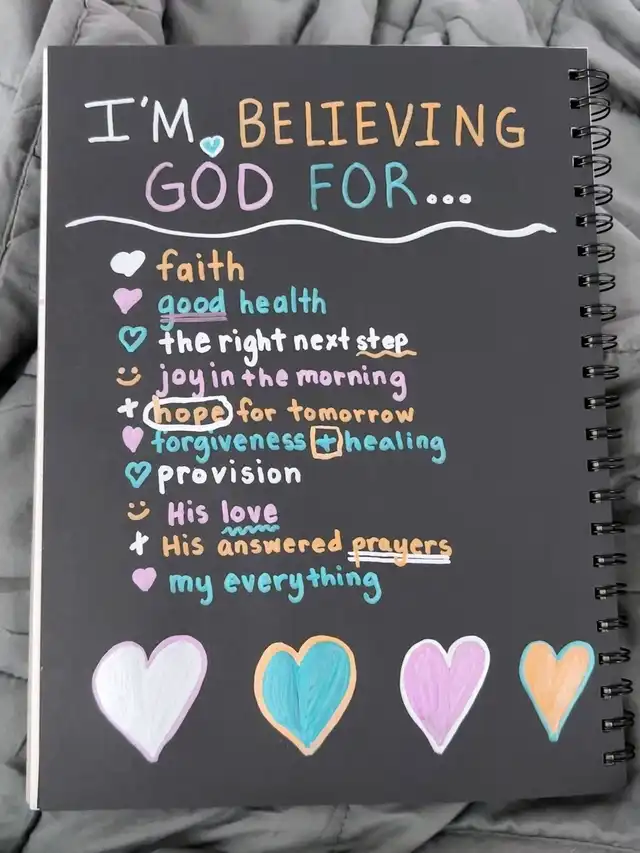 I'M BELIEVING
GOD FOR...
faith
good health
the right next step
joy in the morning
hope for tomorrow
forgiveness + healing
provision
His love
His answered prayers
my everything